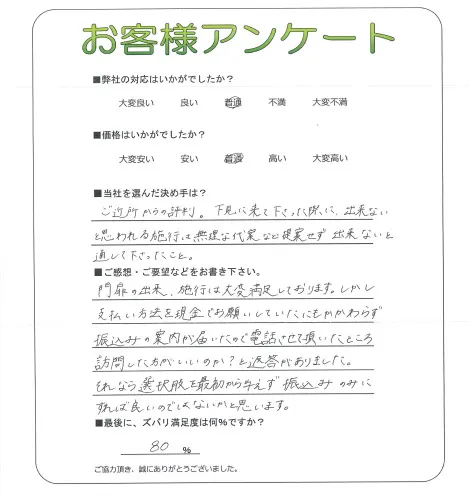 お客様アンケート
■弊社の対応はいかがでしたか？
大変良い　良い　普通　不満　大変不満
■価格はいかがでしたか？
大変安い　安い　普通　高い　大変高い
■当社を選んだ決め手は？
ご近所からの評判。下見に来て下さった際に、出来ない
と思われる施行は無理な代案など提案せず出来ないと
通して下さったこと。
■ご感想・ご要望などをお書き下さい。
門扉の出来、施行は大変満足しております。しかし
支払い方法を現金でお願いしていたにもかかわらず
振込みの案内が届いたので電話させて頂いたところ
訪問した方がいいのか？と返答がありました。
それなら選択肢を最初から与えず振込みのみに
すれば良いのではないかと思います。
■最後に、ズバリ満足度は何%ですか？
80 %
ご協力頂き、誠にありがとうございました。